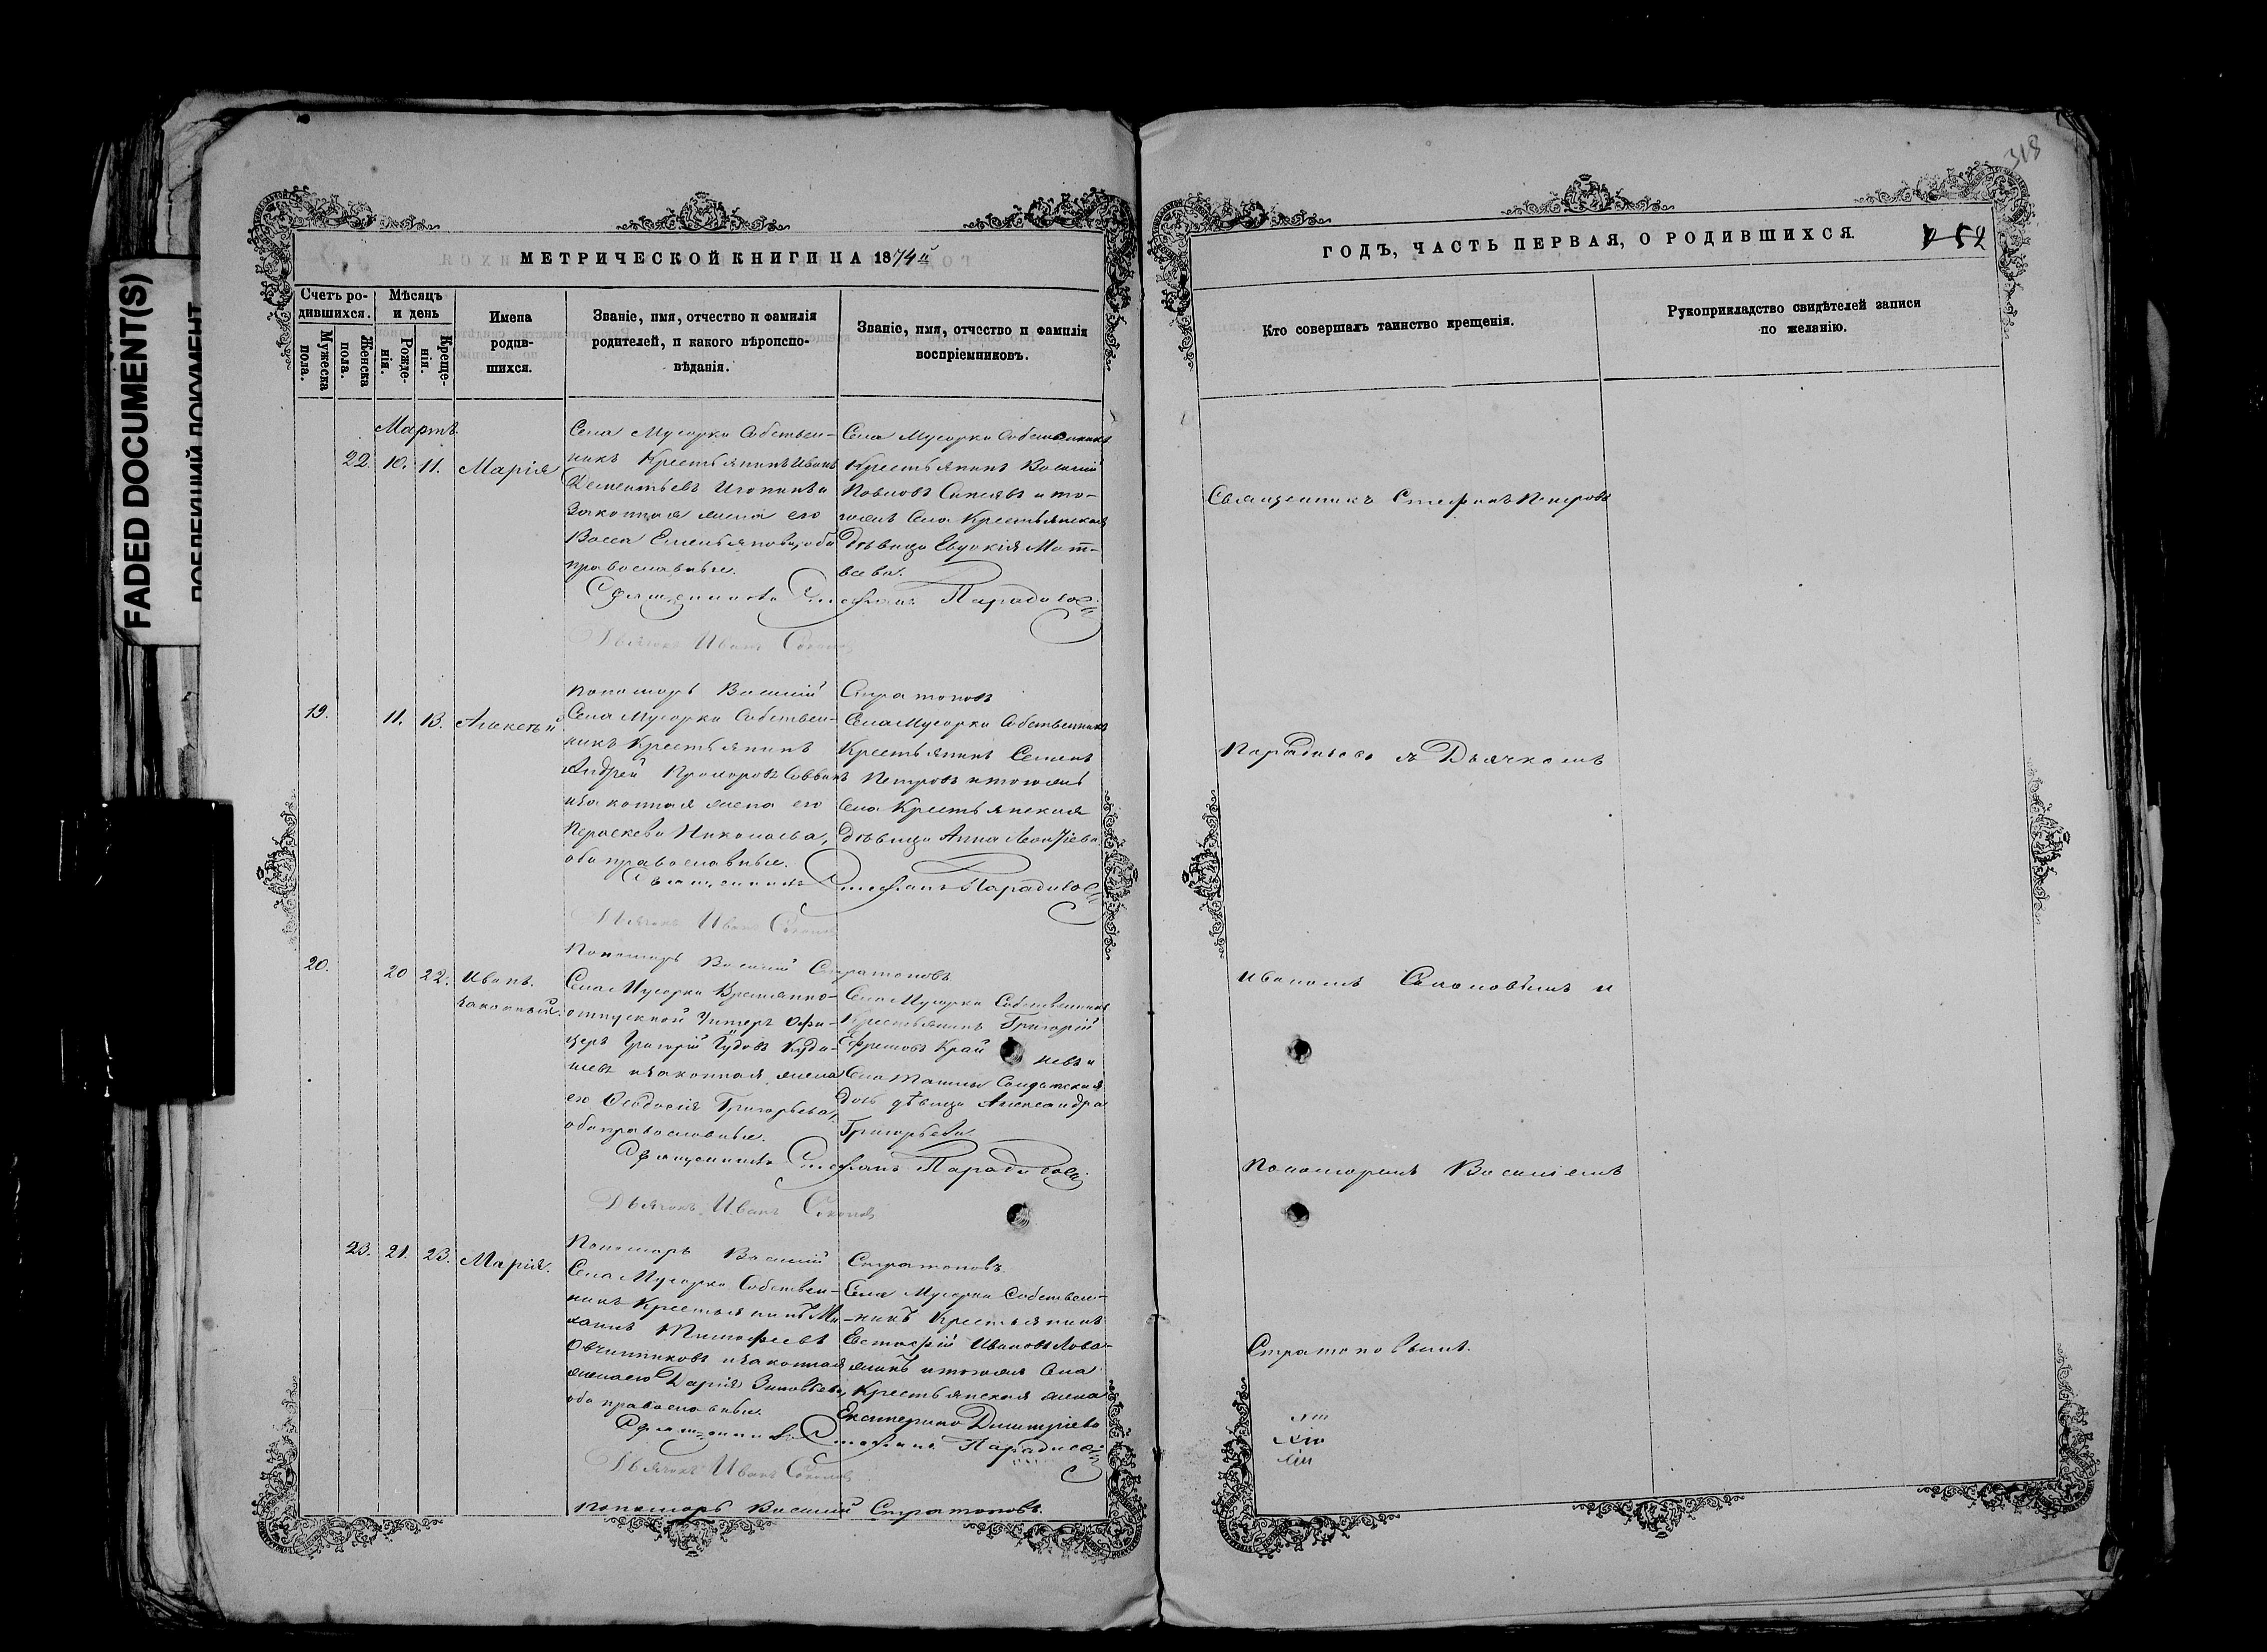 FADED DOCUMENT(S)
МЕТРИЧЕСКОЙ КНИГИ НА 1874й
Счетъ ро-
дившихся.
Мужеска
пола.
Женска
пола.
Мѣсяцъ
и день
Рожде-
нія.
Креще-
нія.
Имена
родив-
шихся.
Званіе, имя, отчество и фамилія
родителей, и какого вѣроиспо-
вѣданія.
Званіе, имя, отчество и фамилія
воспріемниковъ.
Мартъ.
22. 10. 11. Марія
Села Мусорки Собствен-
никъ Крестьянинъ Иванъ
Дементьевъ и
Законная жена его
Васса Емельянова, оба
православные.
Села Мусорки Собственникъ
Крестьянинъ Василій
Павловъ и то-
гожъ Села Крестьянская
Дѣвица Евдокія Мат-
веева.
Священникъ Стефанъ Парадизовъ
Дьячекъ Иванъ
Пономарь Василій Стратоновъ
19. 11. 13. Алексѣй
Села Мусорки Собствен-
никъ Крестьянинъ
Андрей Прохоровъ
и законная жена его
Параскева Николаева,
оба православные.
Села Мусорки Собственникъ
Крестьянинъ Семенъ
Петровъ и тогожъ
Села Крестьянская
Дѣвица Анна Леонтіева
Священникъ Стефанъ Парадизовъ
Дьячекъ Иванъ
Пономарь Василій Стратоновъ
20. 20 22. Иванъ.
законный.
Села Мусорки Временно-
отпускной Унтеръ Офи-
церъ Григорій
и законная жена
его Ѳеодосія Григорьева,
оба православные.
Села Мусорки Собственникъ
Крестьянинъ Григорій
Ефремовъ Край невъ и
Села Ташлы Солдатская
дочь дѣвица Александра
Григорьева.
Священникъ Стефанъ Парадизовъ
Дьячекъ Иванъ
Пономарь Василій Стратоновъ.
23. 21. 23. Марія.
Села Мусорки Собствен-
никъ Крестьянинъ Ми-
хаилъ Тимофеевъ
Овчинниковъ и законная
жена его Дарія Зиновьева,
оба православные.
Села Мусорки Собствен-
никъ Крестьянинъ
Евстафій Ивановъ
и тогожъ Села
Крестьянская жена
Екатерина Димитріева
Священникъ Стефанъ Парадизовъ
Дьячекъ Иванъ
Пономарь Василій Стратоновъ.
318
ГОДЪ, ЧАСТЬ ПЕРВАЯ, О РОДИВШИХСЯ.
52
Кто совершалъ таинство крещенія.
Рукоприкладство свидѣтелей записи
по желанію.
Священникъ Стефанъ Петровъ
Парадизовъ съ Дьячкомъ
Иваномъ и
Пономаремъ Василіемъ
Стратоновымъ.